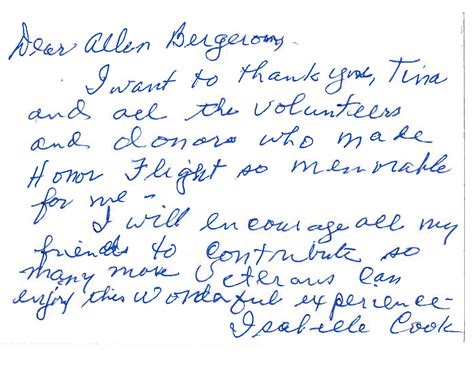 Dear Allen Bergeron,
I want to thank you, Tina
and all the volunteers
and donors who made
Honor Flight so memorable
for me -
I will encourage all my
friends to contribute so
many more Veterans can
enjoy this wonderful experience-
Isabelle Cook